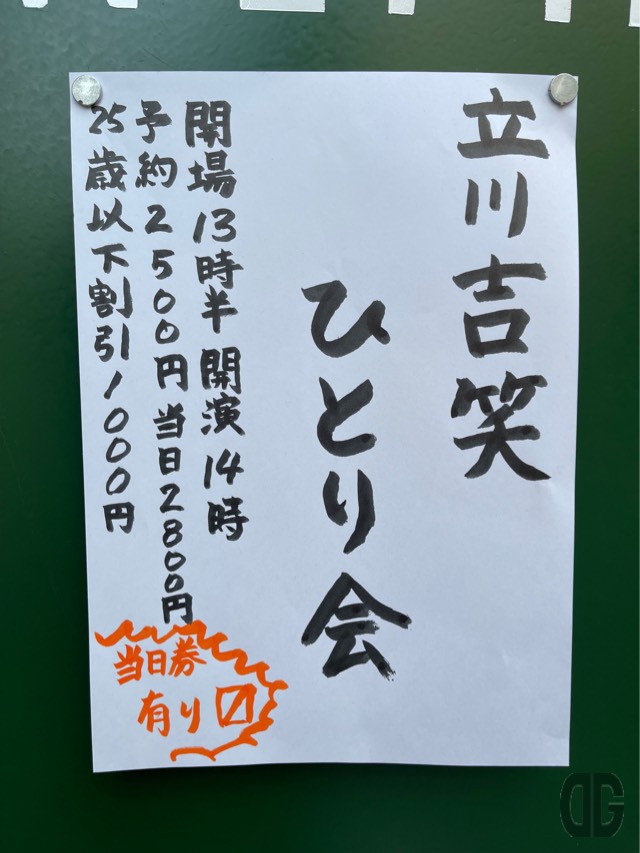 立川吉笑
ひとり会
開場13時半 開演14時
予約2500円 当日2800円
25歳以下割引1000円
当日券
有り〼
DG